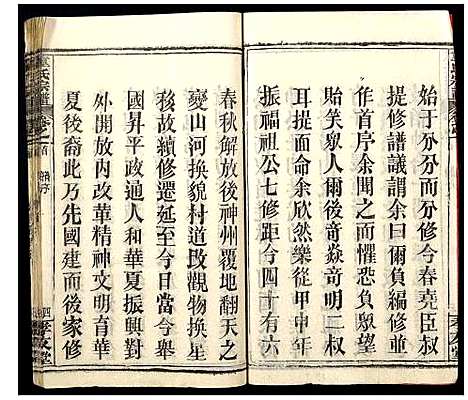 始于分分而分修今春堯臣叔
提修譜議謂余曰爾負編修並
作首序余聞之而懼恐負眾望
貽笑眾人爾後竒焱竒明二叔
耳提面命余欣然樂從甲申年
振福祖公七修距今四十有六
春秋解放後神州覆地翻天之
變山河換貌村道改觀物換星
移故續修遷延至今日當今舉
國昇平政通人和華夏振興對
外開放内改革精神文明育華
夏後裔此乃先國建而後家修
氏宗譜
卷之首
譜序
四
孝友堂